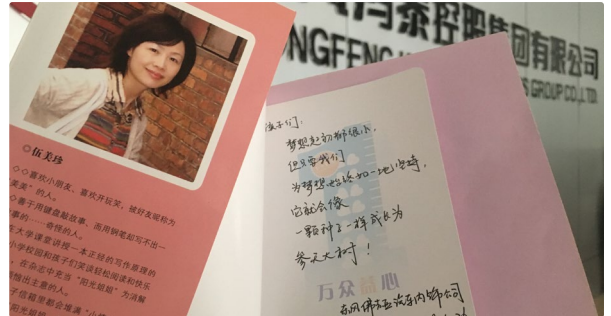 控股集团有限公司
ONGFENG
GROUP CO.,LTD.
◎伍美珍
◇◇喜欢小朋友、喜欢开玩笑，被好友昵称为
美美”的人。
◇善于用键盘敲故事，而用钢笔却写不出一
事的……奇怪的人。
在大学课堂讲授一本正经的写作原理的
小学校园和孩子们笑谈轻松阅读和快乐
，在杂志中充当“阳光姐姐”为消解
出主意的人。
子信箱里都会堆满“小
孩子们：
梦想起初都很小，
但只要我们
为梦想始终如一地坚持，
它就会像
一颗种子一样成长为
参天大树！
万众 心
东风佛吉亚汽车内饰公司